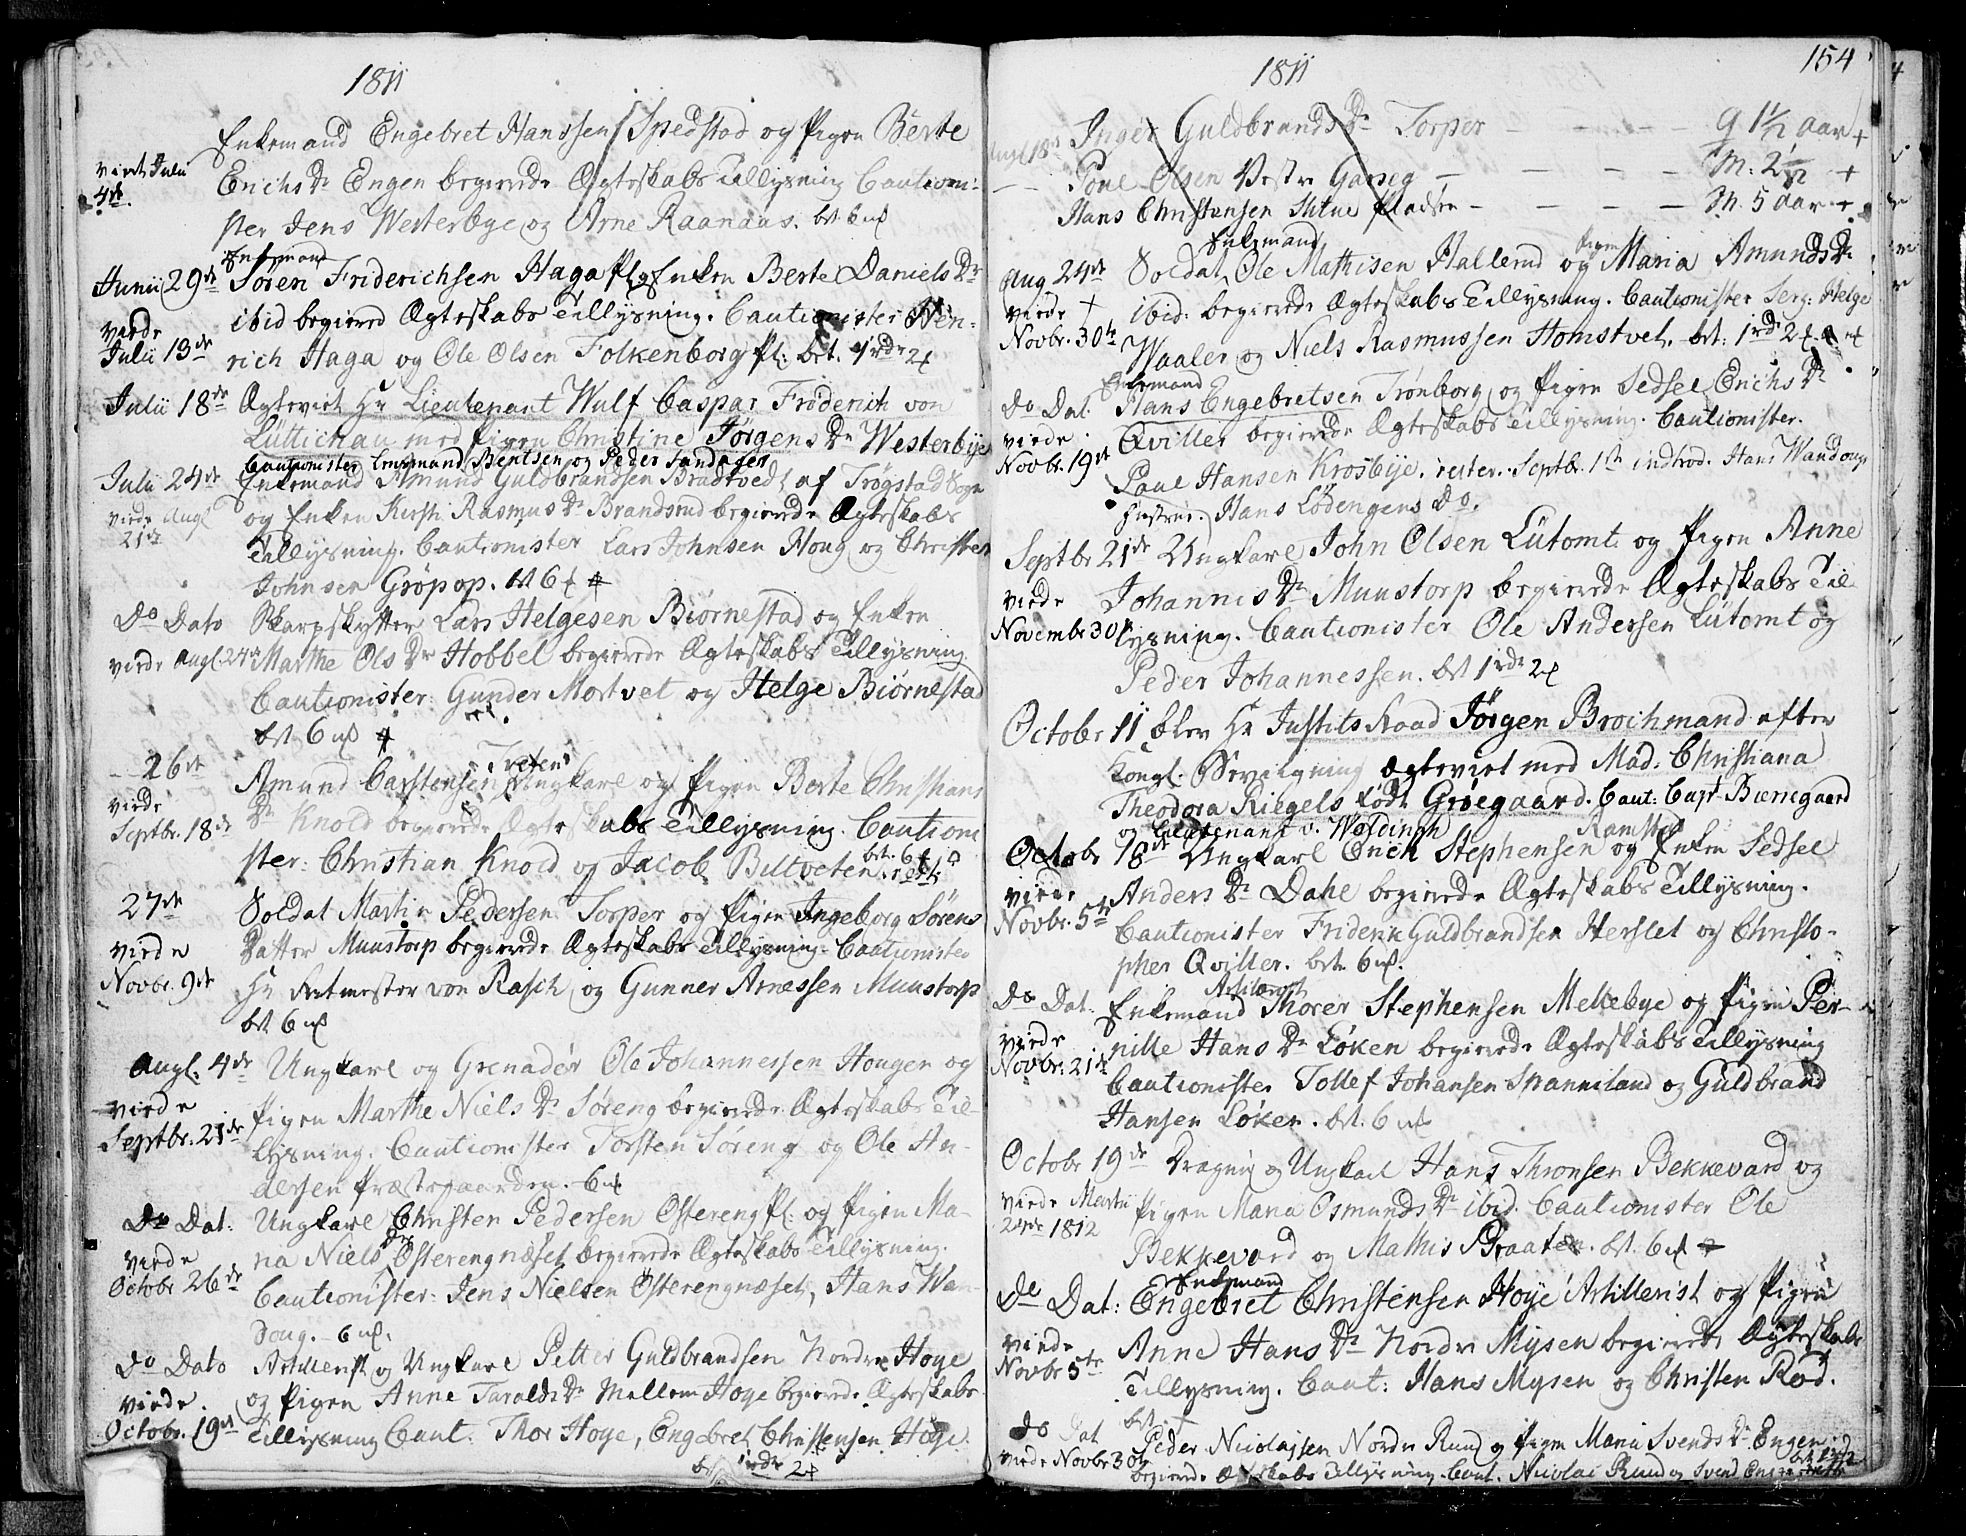 1811
Enkemand Engebret Hanssen Spedstad og Pigen Berte
viet Julii
4de
Erichs Dr Engen begierede Ægteskabs Tillysning Cautioni-
ster Jens Westerbye og Arne Raanaas. bet 6 mk
Enkemand
Junii 29de Søren Friderichsen Haga Pl og Enken Berte Daniels Dr
ibid begiered Ægteskabs Tillysning. Cautionister Hen-
viede
Julii 13de
rich Haga og Ole Olsen Folkenborg Pl: bet. 1 rdr 2
Julii 18de Ægteviet Hr Lieutenant Wulf Caspar Friderich von
Lüttichau med Pigen Christine Jørgens Dr Westerbye
Cautionister Lensmand Bentsen og Peder Sandager
Julii 24de Enkemand Amund Guldbrandsen Bradtvedt af Trøgstad Sogn
viede Augl
21de
og Enken Kirsti Rasmus Dr Brandsrud begierede Ægteskabs
Tillysning. Cautionister Lars Johnsen Houg og Christen
Johnsen Gröpop. bet 6
Do Dato Skarpskytter Lars Helgesen Biörnestad og Enken
viede Augl. 24de Marthe Ols Dr Hobbel begierede Ægteskabs Tillysning
Cautionister: Gunder Mortvet og Helge Biörnestad
bet 6 mk
26de Amund Carstensen Ungkarl og Pigen Berte Christians
viede
Septbr. 18de
Dr Knold begierede Ægteskabs Tillysning. Cautioni
ster: Christian Knold og Jacob Bultveten.
27de Soldat Martin Pedersen Torper og Pigen Ingeborg Sörens
viede
Novbr. 9de
Datter Muustorp begierede Ægteskabs Tillysning. Cautionister
Hr Ritmester von Rasch og Gunner Arnessen Muustorp
bet 6 mk
Augl. 4de Ungkarl og Grenader Ole Johannessen Hougen og
viede
Septbr. 21de
Pigen Marthe Niels Dr Søreng begierede Ægteskabs Til-
lysning. Cautionister Torsten Søreng og Ole An-
dersen Præstegaarden. 6 mk
Do Dat: Ungkarl Christen Pedersen Østereng Pl. og Pigen Ma-
viede
Octobr 26de
ria Niels Dr Østerengnæset begierede Ægteskabs Tillysning.
Cautionister: Jens Nielsen Østerengnæset, Hans Wan-
doug. 6 mk.
Do Dato Artillerist og Ungkarl Petter Guldbrandsen Nordre Hoye
viede.
Octobr. 19de
og Pigen Anne Taralds Dr Mellem Hoye begierede Ægteskabs
Tillysning Caut: Thor Hoye, Engebret Christensen Høye.
bet 1 rdr 2
1811
154
Augl 18de Inger Guldbrands Dr Torper - - - - 9 1/2 aar +
Poul Olsen Vestre Garseg - - - - M. 2 1/2 +
Hans Christensen Sktue Pladsen - - - - M. 5 aar +
Enkemand
Pigen
Aug 24de Soldat Ole Mathisen Hallerud og Maria Amunds Dr
viede +
Novbr. 30te
ibid. begierede Ægteskabs Tillysning. Cautionister Serg: Helge
Waaler og Niels Rasmussen Homstvet. bet: 1 rdr 2
Enkemand
Do Dat. Hans Engebretsen Trønborg og Pigen Sedsel Erichs Dr
viede
Novbr. 19de
Qviller begierede Ægteskabs Tillysning. Cautionister.
Paul Hansen Krosbye. Septbr. 1ste indtrod. Hans Wandougs
Hustrue. Hans Lødengens Do.
Septbr 21de Ungkarl John Olsen Lütomt og Pigen Anne
viede
Novembr 30te
Johannis Dr Muustorp begierede Ægteskabs Til-
lysning. Cautionister Ole Andersen Lütomt og
Peder Johannessen. bet 1 rdr 2
Octobr 11 blev Hr Justits Raad Jörgen Brochmand efter
Kongl. Bevilgning ægteviet med Mad. Christiana
Theodora Riegels født Gröegaard. Caut: Capt Bieregaard
og Lieutenant v. Woldingh
Ramstad
Octobr 18de Ungkarl Erich Stephensen og Enken Sedsel
viede
Novbr. 5te
Anders Dr Dahe begierede Ægteskabs Tillysning.
Cautionister Friderik Guldbrandsen Herslet og Christo-
pher Qviller. bet 6 mk.
Artillerist
Do Dat. Enkemand Thorer Stephensen Mellebye og Pigen Per-
viede
Novbr. 21de
nille Hans Dr Løken begierede Ægteskabs Tillysning
Cautionister Tollef Johansen Spanneland og Guldbrand
Hansen Løken. bet. 6 mk
Octobr 19de Dragun og Ungkarl Hans Thronsen Bekkevard og
viede Martii
24de 1812
Pigen Maria Osmunds Dr ibid. Cautionister Ole
Bekkevard og Mathis Braaten. bet. 6 mk
Enkemand
Do Dat: Engebret Christensen Hoye Artillerist og Pigen
viede
Novbr 5te
Anne Hans Dr Nordre Mysen begierede Ægteskabs
Tillysning. Caut: Hans Mysen og Christen Rød.
bet
do Dat Peder Nicolajsen Nordre Ruud og Pigen Maria Svends Dr Engen
viede Novbr 30te begierede Ægteskabs Tillysning. Caut. Nicolai Ruud og Svend Engen